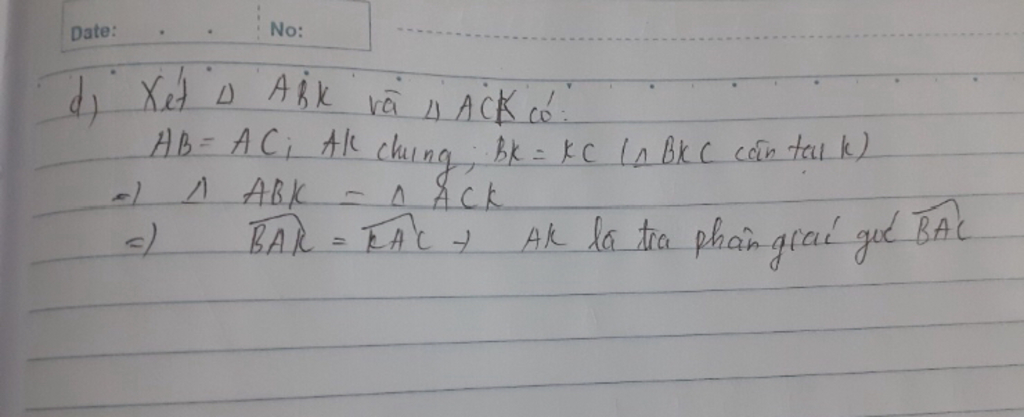 Date: No:
d, Xét Δ ABK và Δ ACK có:
AB = AC; AK chung; BK = KC (Δ BKC cân tại K)
=) Δ ABK = Δ ACK
=) BAK = KAC → AK là tia phân giác góc BAC